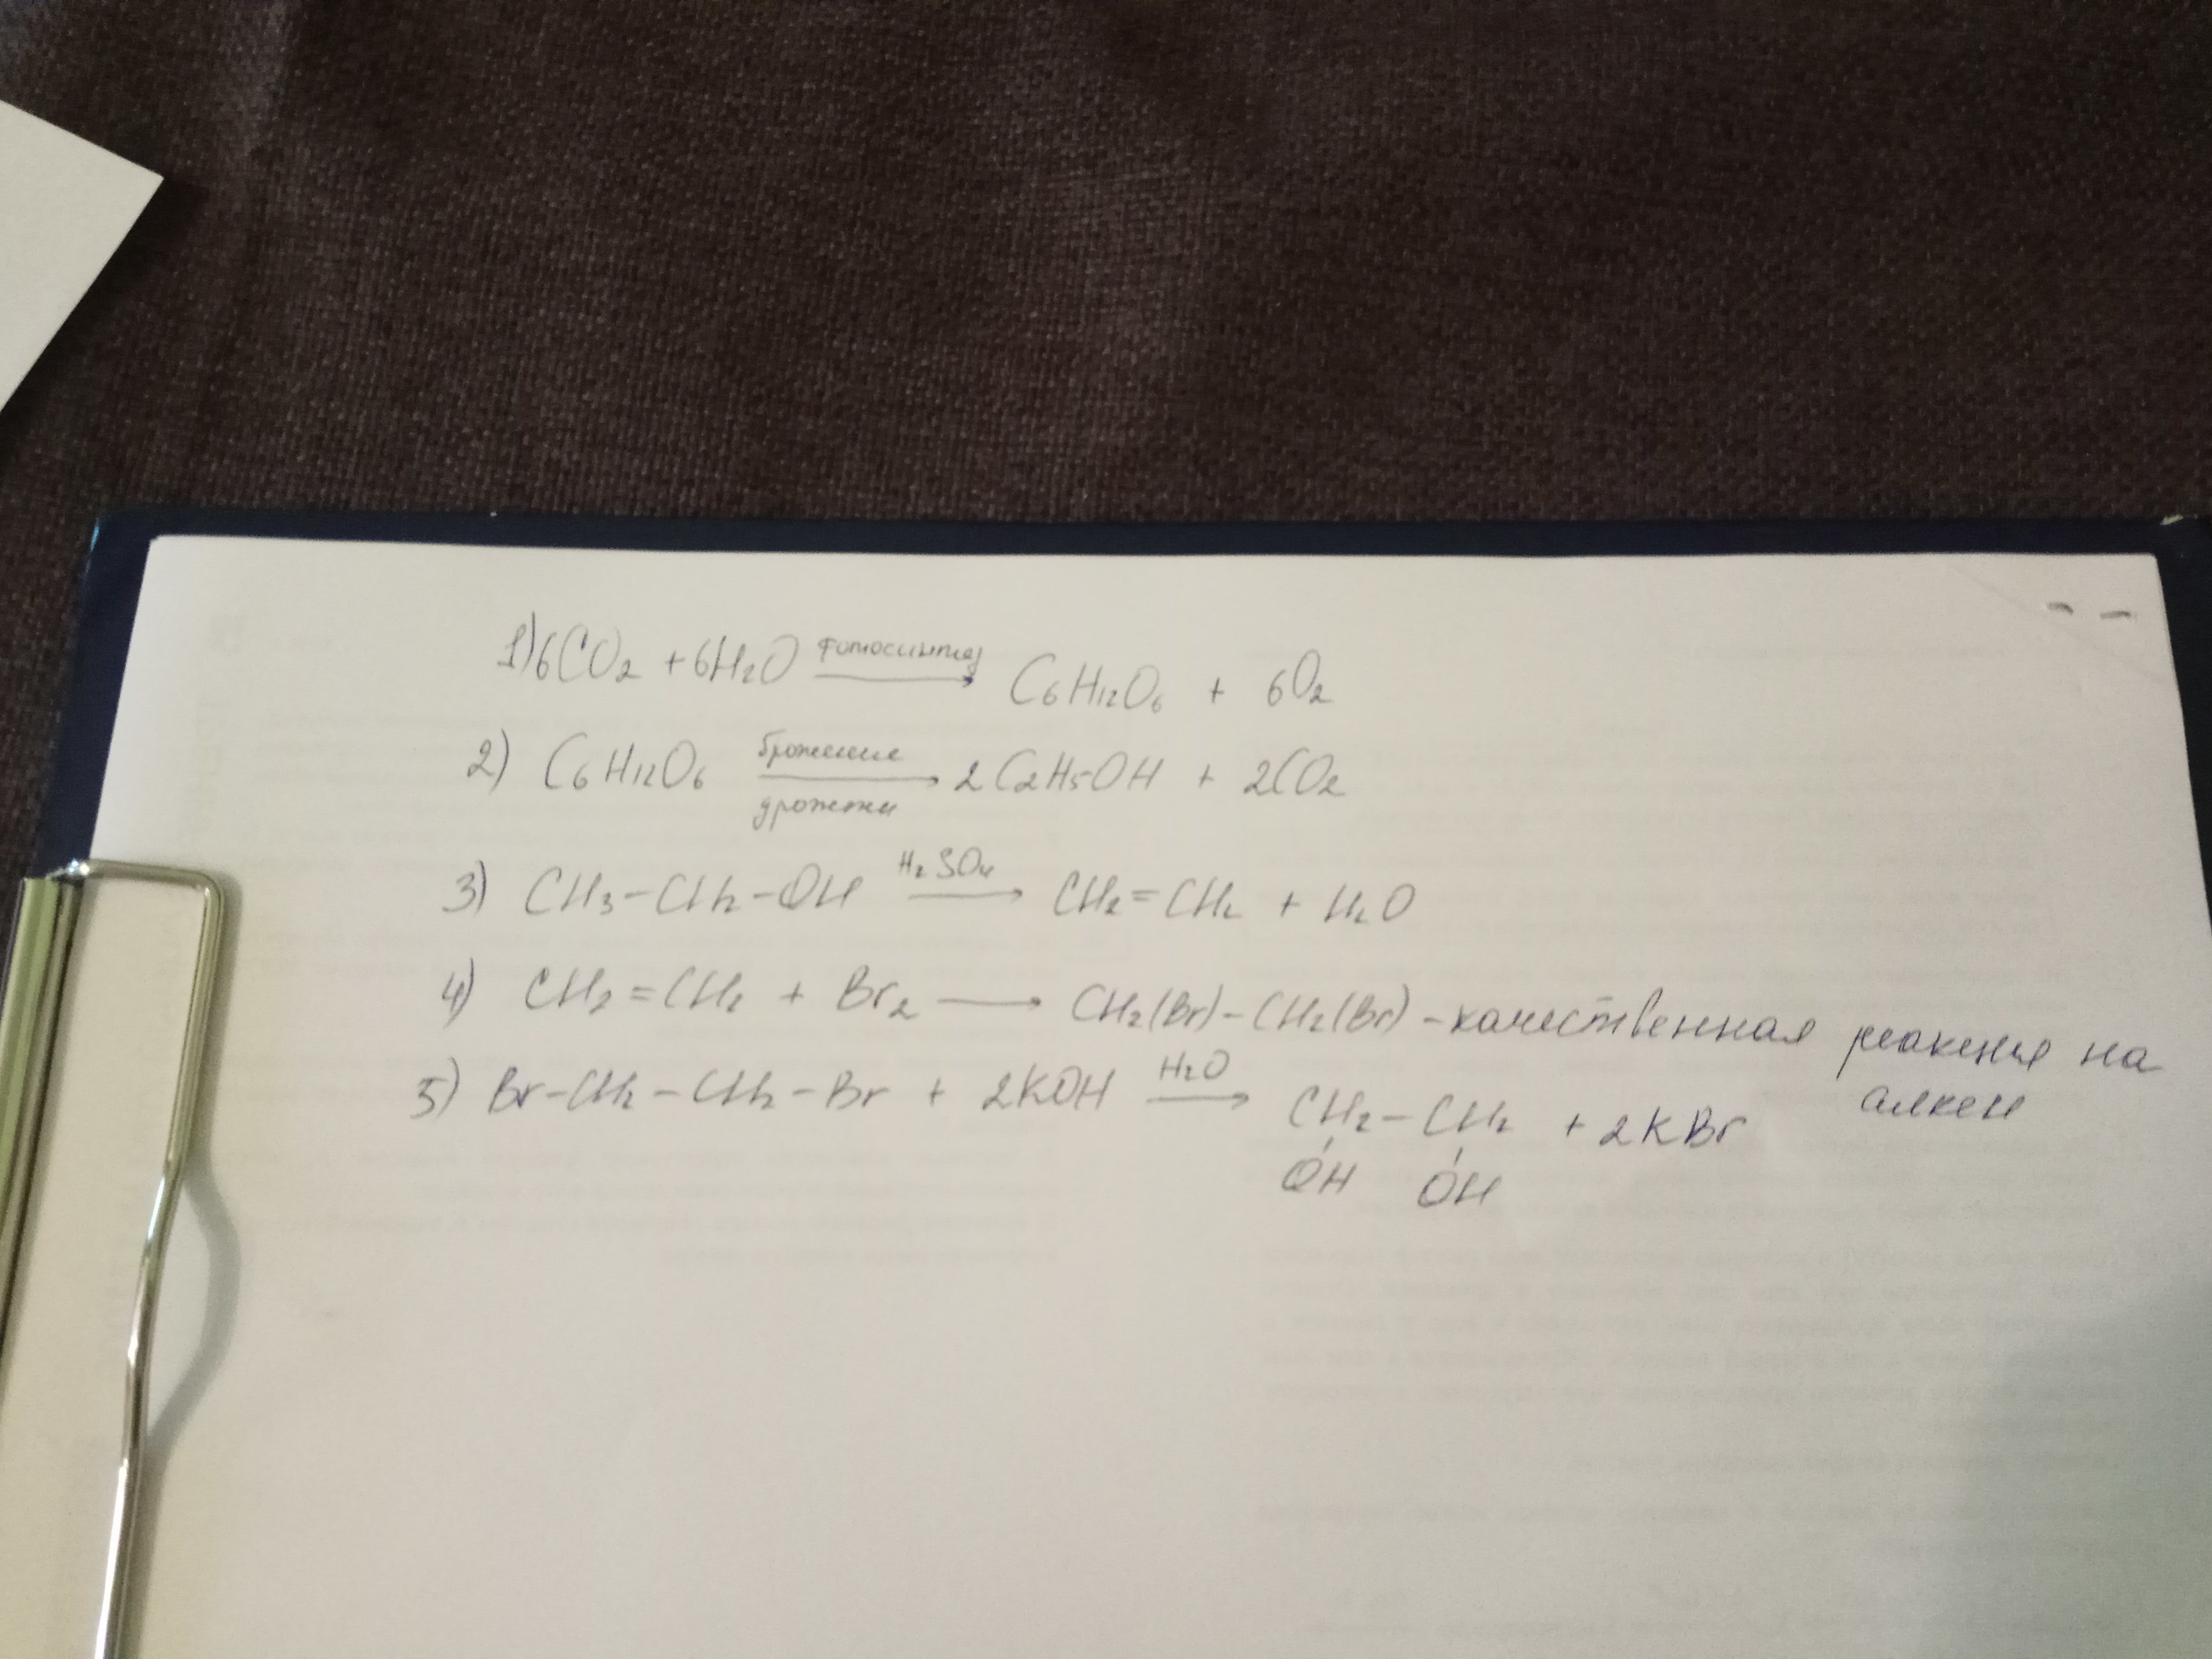 1) 6CO2 + 6H2O фотосинтез → C6H12O6 + 6O2
2) C6H12O6 брожение дрожжи → 2C2H5OH + 2CO2
3) CH3-CH2-OH H2SO4 → CH2=CH2 + H2O
4) CH2=CH2 + Br2 → CH2(Br)-CH2(Br) - качественная реакция на
алкен
5) Br-CH2-CH2-Br + 2KOH H2O → CH2-CH2 + 2KBr
OH OH